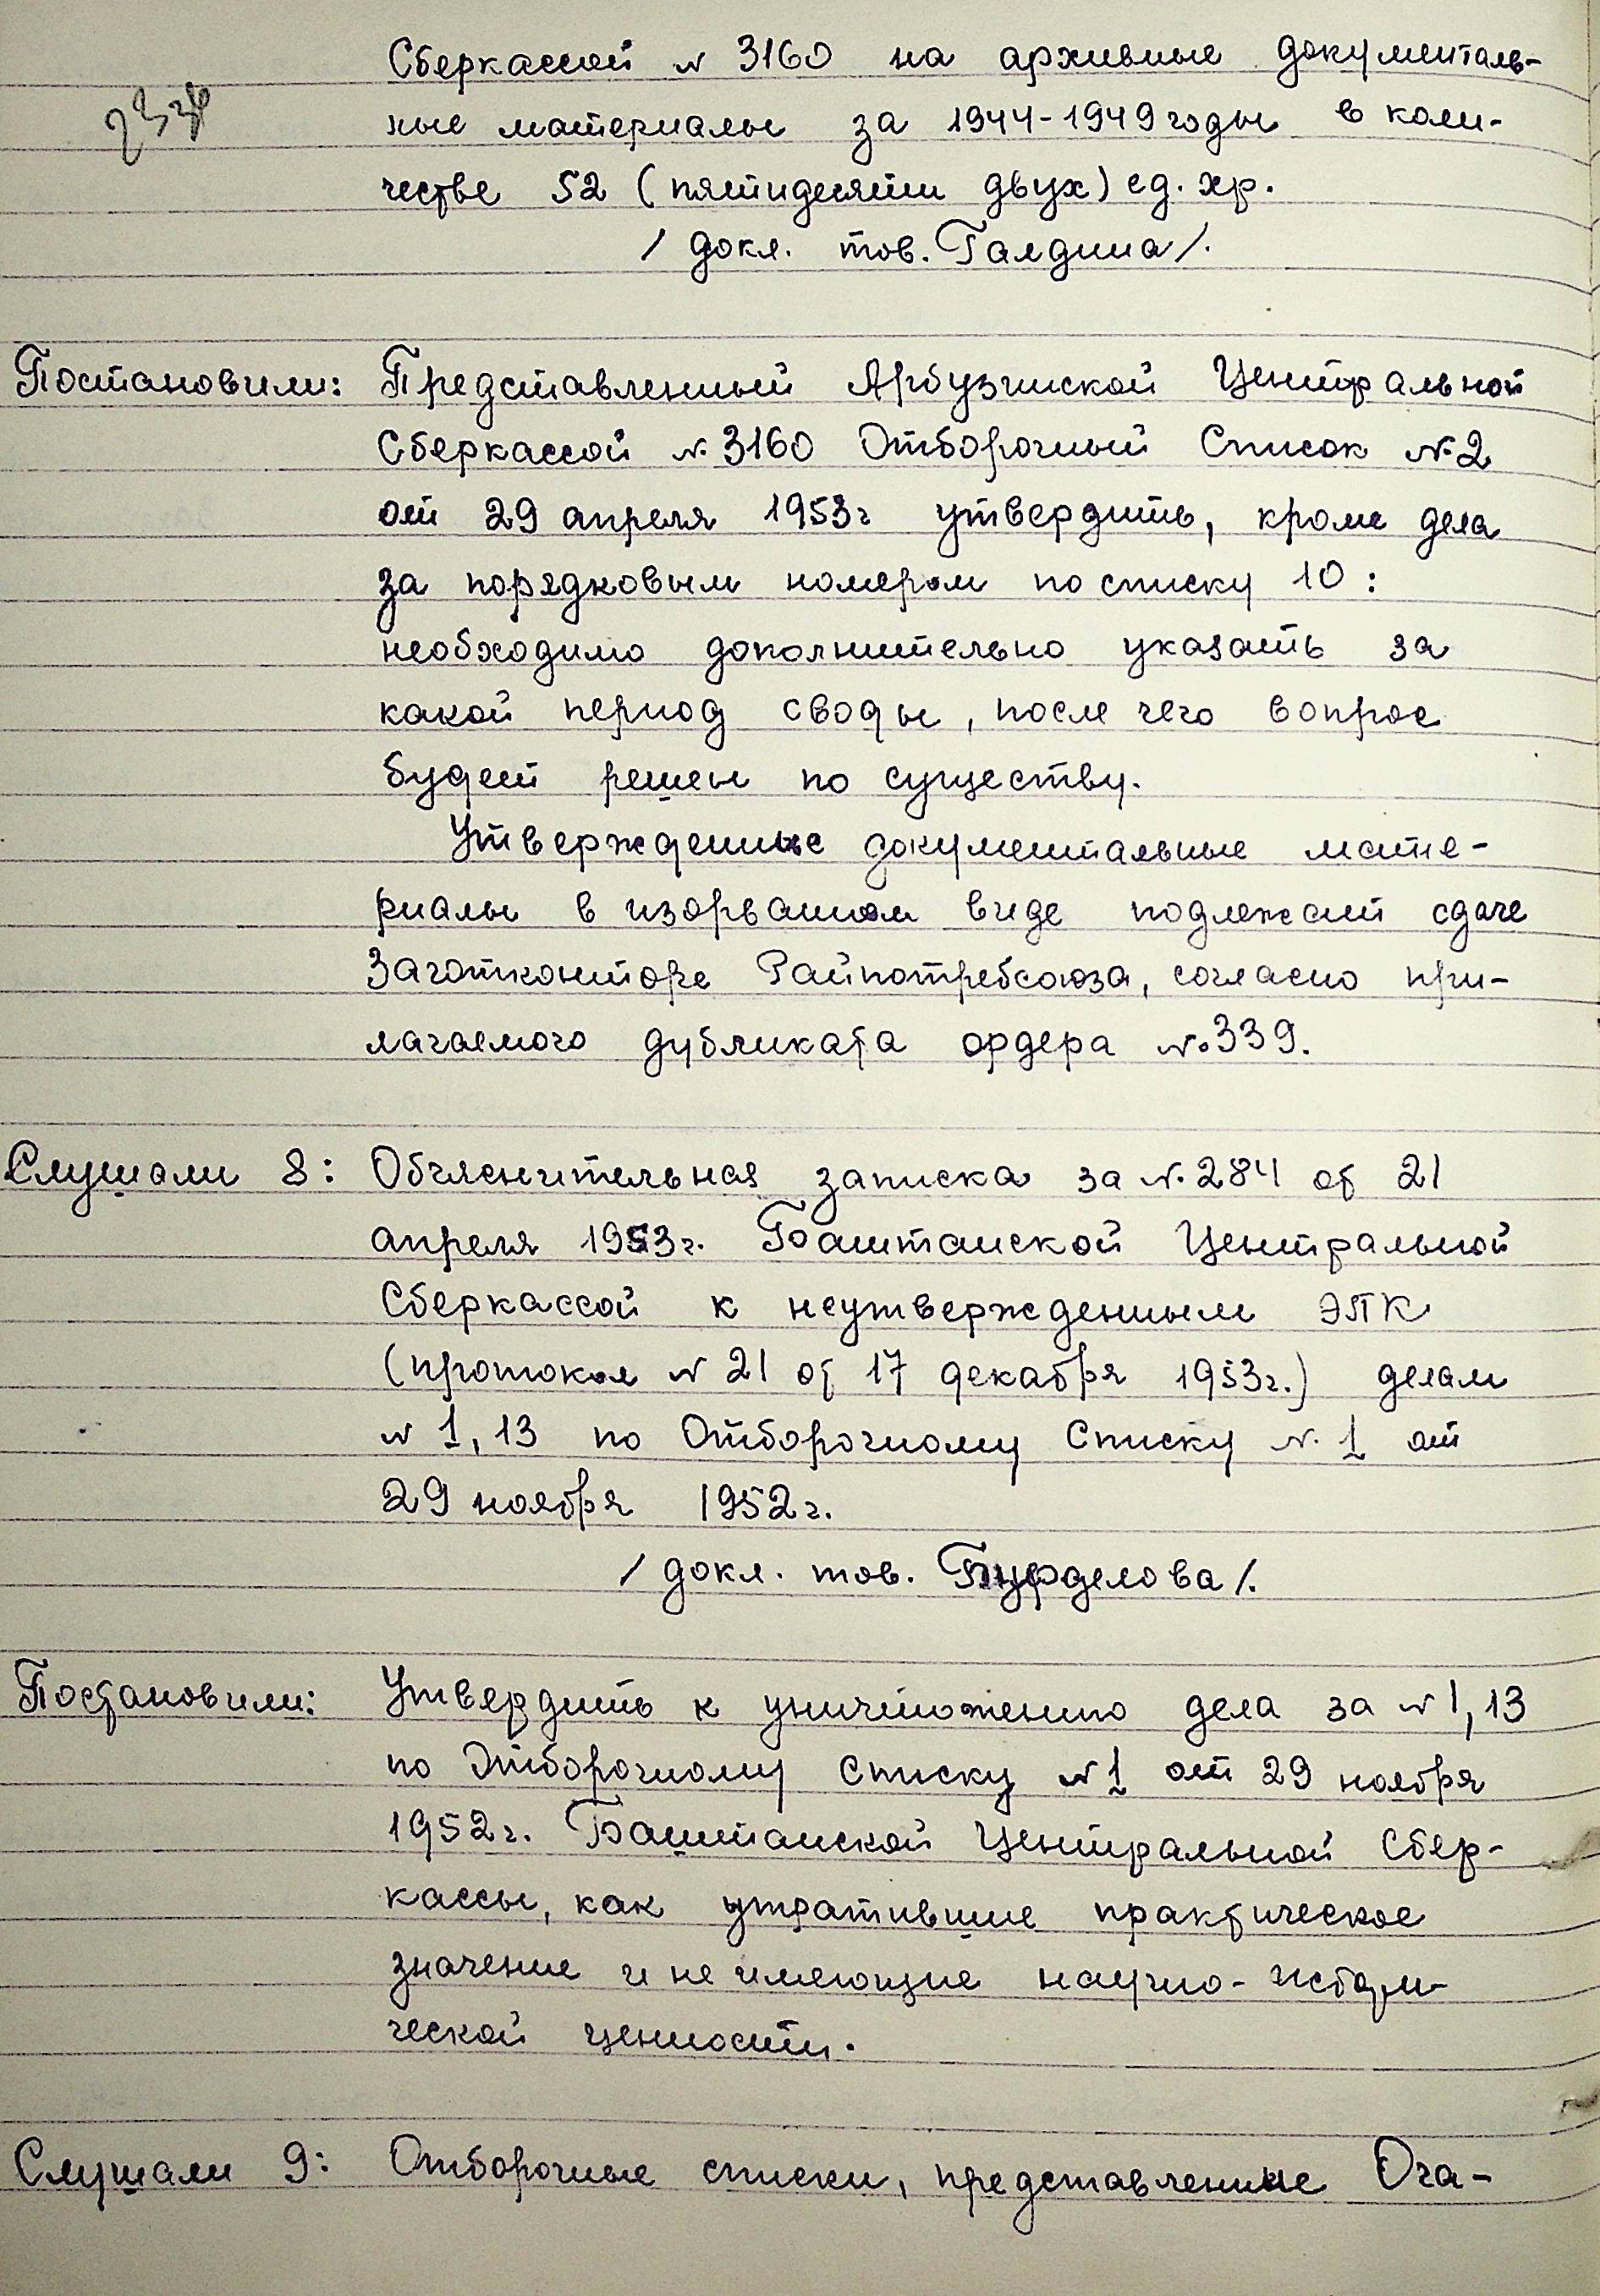 Сберкассой № 3160 на архивные документаль-
ные материалы за 1944-1949 годы в коли-
честве 52 (пятидесяти двух) ед. хр.
/ докл. тов. Галдина /.
Постановили: Представленный Арбузинской Центральной
Сберкассой №. 3160 Отборочный Список № 2
от 29 апреля 1953г утвердить, кроме дела
за порядковым номером по списку 10:
необходимо дополнительно указать за
какой период своды, после чего вопрос
будет решен по существу.
Утвержденные документальные мате-
риалы в изорванном виде подлежат сдаче
Заготконторе Райпотребсоюза, согласно при-
лагаемого дубликата ордера №339.
Слушали 8: Объяснительная записка за №.284 от 21
апреля 1953г. Баштанской Центральной
Сберкассой к неутвержденным ЭПК
(протокол № 21 от 17 декабря 1953г.) делам
№ 1, 13 по Отборочному Списку №. 1 от
29 ноября 1952г.
/ докл. тов. Бурделова /.
Постановили: Утвердить к уничтожению дела за № 1, 13
по Отборочному Списку №1 от 29 ноября
1952г. Баштанской Центральной Сбер-
кассы, как утратившие практическое
значение и не имеющие научно-истори-
ческой ценности.
Слушали 9: Отборочные списки, представленные Оча-